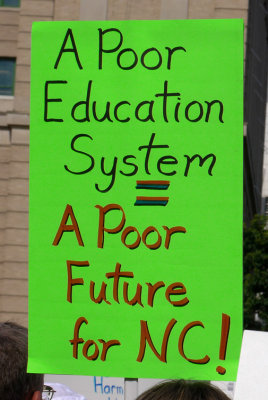 A Poor
Education
System
=
A Poor
Future
for NC!
Harm